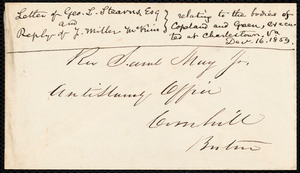 Letter of Geo. L. Stearns, Esq
and
Reply of J. Miller McKim
relating to the bodies of
Copeland and Green, execu-
ted at Charlestown, Va
Dec. 16. 1859.
Rev Saml May Jr.
Antislavery Office
Cornhill
Boston